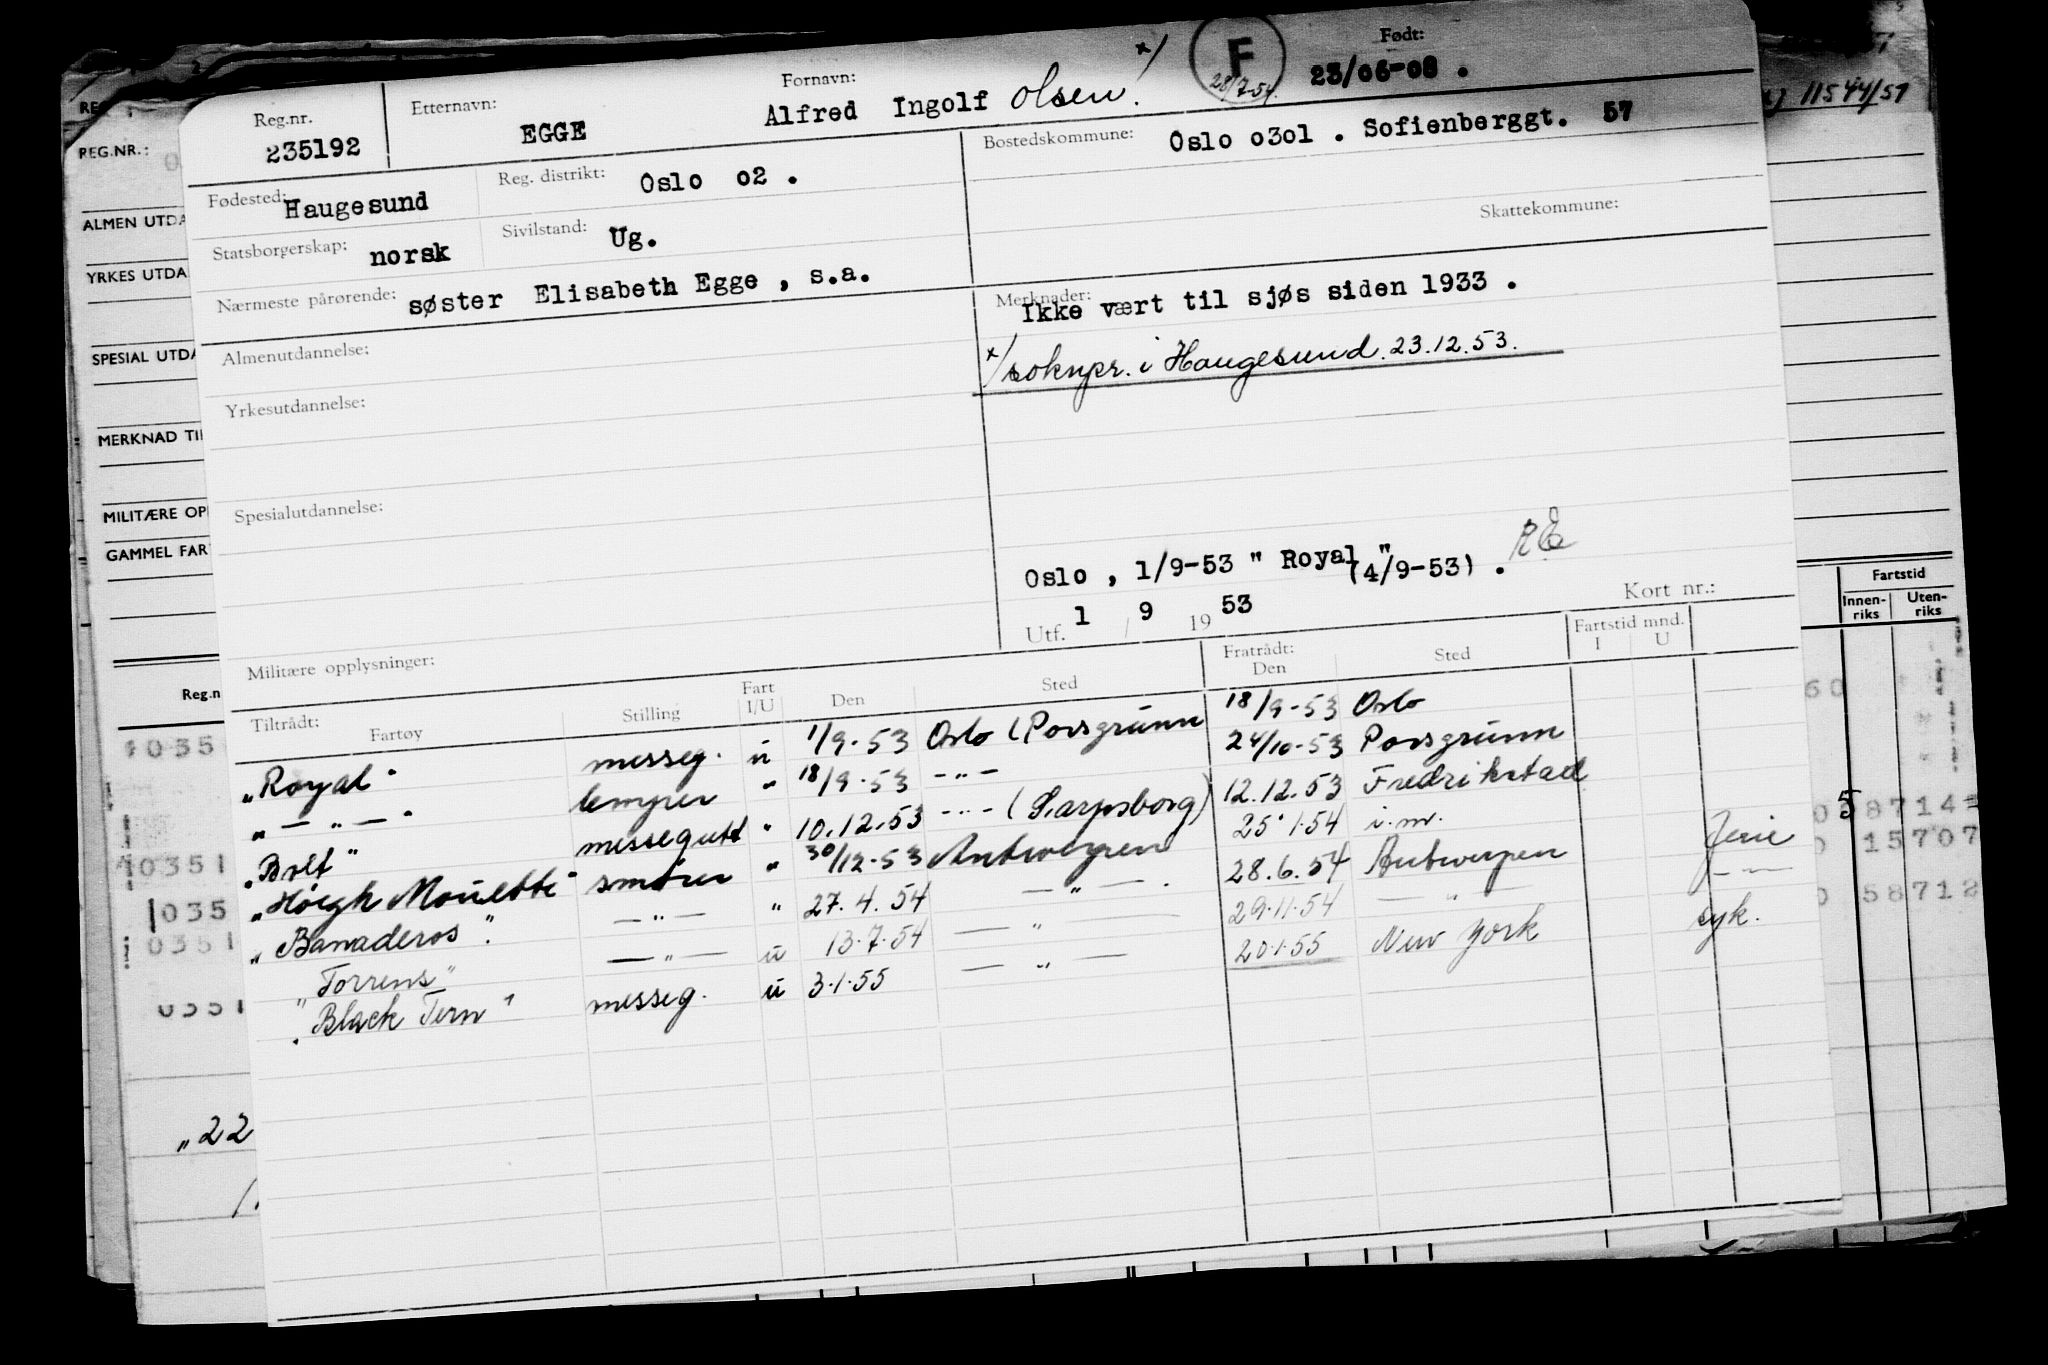 Reg.nr. 235192
Etternavn: EGGE
Fornavn: Alfred Ingolf Olsen. x/
F
28/7-54.
Født: 23/06-08 .
Bostedskommune: Oslo 0301 . Sofienberggt. 57
Fødested: Haugesund
Reg. distrikt: Oslo 02 .
Skattekommune:
Statsborgerskap: norsk
Sivilstand: Ug.
Nærmeste pårørende: søster Elisabeth Egge , s.a.
Merknader: Ikke vært til sjøs siden 1933 .
x/ soknpr. i Haugesund. 23.12.53.
Almenutdannelse:
Yrkesutdannelse:
Spesialutdannelse:
Oslo , 1/9-53 " Royal " (4/9-53) .
Utf. 1 / 9 19 53
Kort nr.:
Militære opplysninger:
Tiltrådt: Fartøy Stilling Fart I/U Den Sted Fratrådt: Den Sted Fartstid mnd. I U
"Royal" messeg. u 1/9-53 Oslo (Porsgrunn 18/9-53 Oslo
" — " — " lemper " 18/9-53 — " — 24/10-53 Porsgrunn
"Bolt" messegutt " 10.12.53 — " — (Sarpsborg) 12.12.53 Fredrikstad
"Høegh smører " 30/12-53 Antwerpen 25.1.54 i.m.
"Banaderos" — " — " 27.4.54 — " — 28.6.54 Antwerpen Ferie
"Torrens" — " — u 13.7.54 — " — 29.11.54 — " — — " —
"Black Tern" messeg. u 3.1.55 — " — 20.1.55 New York syk.
REG.NR.:
ALMEN UTDA
YRKES UTDA
SPESIAL UTDA
MERKNAD TIL
MILITÆRE OP
GAMMEL FAR
Reg.n
1035
10351
1035
0351
0351
"22
11544/51
Fartstid
Innen-riks Uten-riks
60
58714
15707
58712